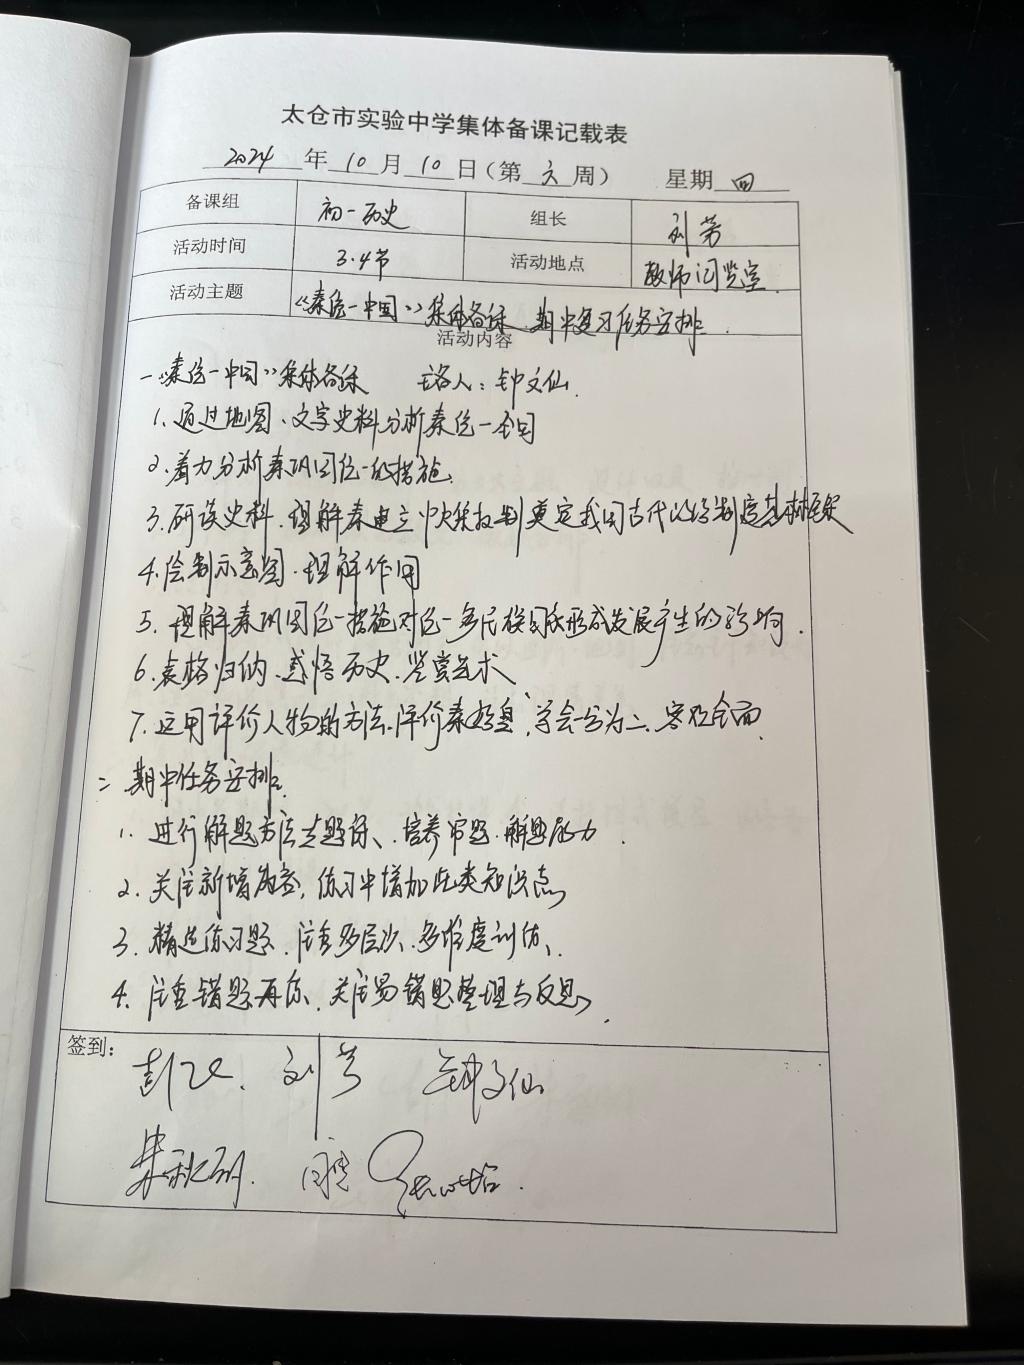 太仓市实验中学集体备课记载表
2024年10月10日（第六周） 星期四
备课组 初一历史 组长 刘芳
活动时间 3.4节 活动地点 教师阅览室.
活动主题 《秦统一中国》集体备课 期中复习任务安排.
活动内容
一《秦统一中国》集体备课 主备人：钟文仙.
1.通过地图、文字史料分析秦统一全国
2.着力分析秦巩固统一的措施.
3.研读史料.理解秦建立中央集权制奠定我国古代政治制度基本框架
4.绘制示意图.理解作用
5.理解秦巩固统一措施对统一多民族国家形成发展产生的影响.
6.表格归纳.感悟历史.鉴赏艺术
7.运用评价人物的方法.评价秦始皇,学会一分为二、客观全面.
二 期中任务安排.
1.进行解题方法专题课、培养审题.解题能力.
2.关注新增内容,练习中增加此类知识点
3.精选练习题.注重多层次、多维度训练、
4.注重错题再练、关注易错题整理与反思.
签到：
刘芳 钟文仙
朱秋